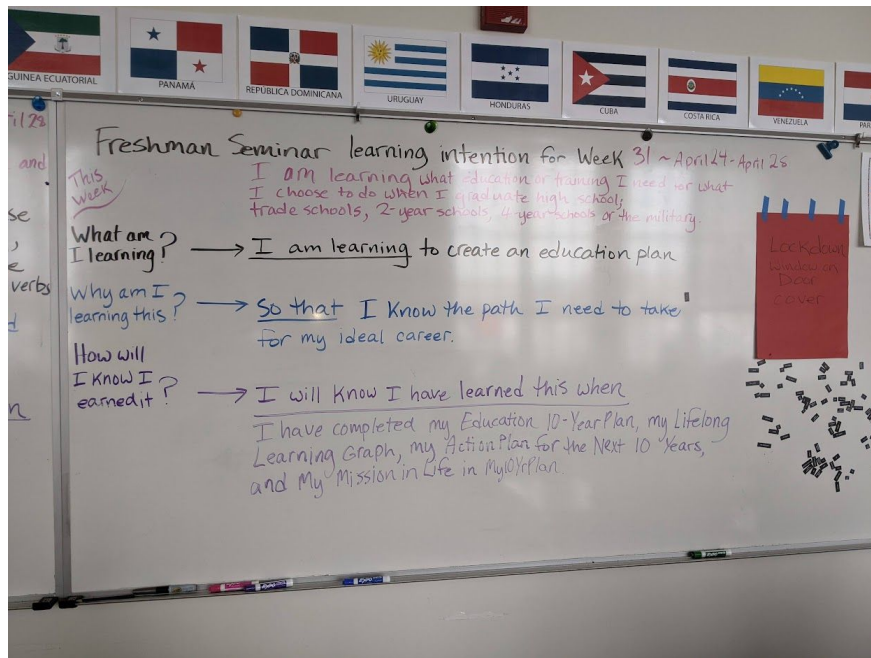 GUINEA ECUATORIAL
PANAMÁ
REPÚBLICA DOMINICANA
URUGUAY
HONDURAS
CUBA
COSTA RICA
VENEZUELA
PAR
ril 28
and
se
,
e
verbs
d
n
Freshman Seminar learning intention for Week 31 ~ April 24 - April 28
This
Week
I am learning what education or training I need for what
I choose to do when I graduate high school;
trade schools, 2-year schools, 4-year schools or the military.
What am
I learning?
I am learning to create an education plan
Why am I
learning this?
So that I know the path I need to take
for my ideal career.
How will
I know I
earned it?
I will know I have learned this when
I have completed my Education 10-Year Plan, my Lifelong
Learning Graph, my Action Plan for the Next 10 Years,
and My Mission in Life in My10YrPlan
Lockdown
window on
Door
cover